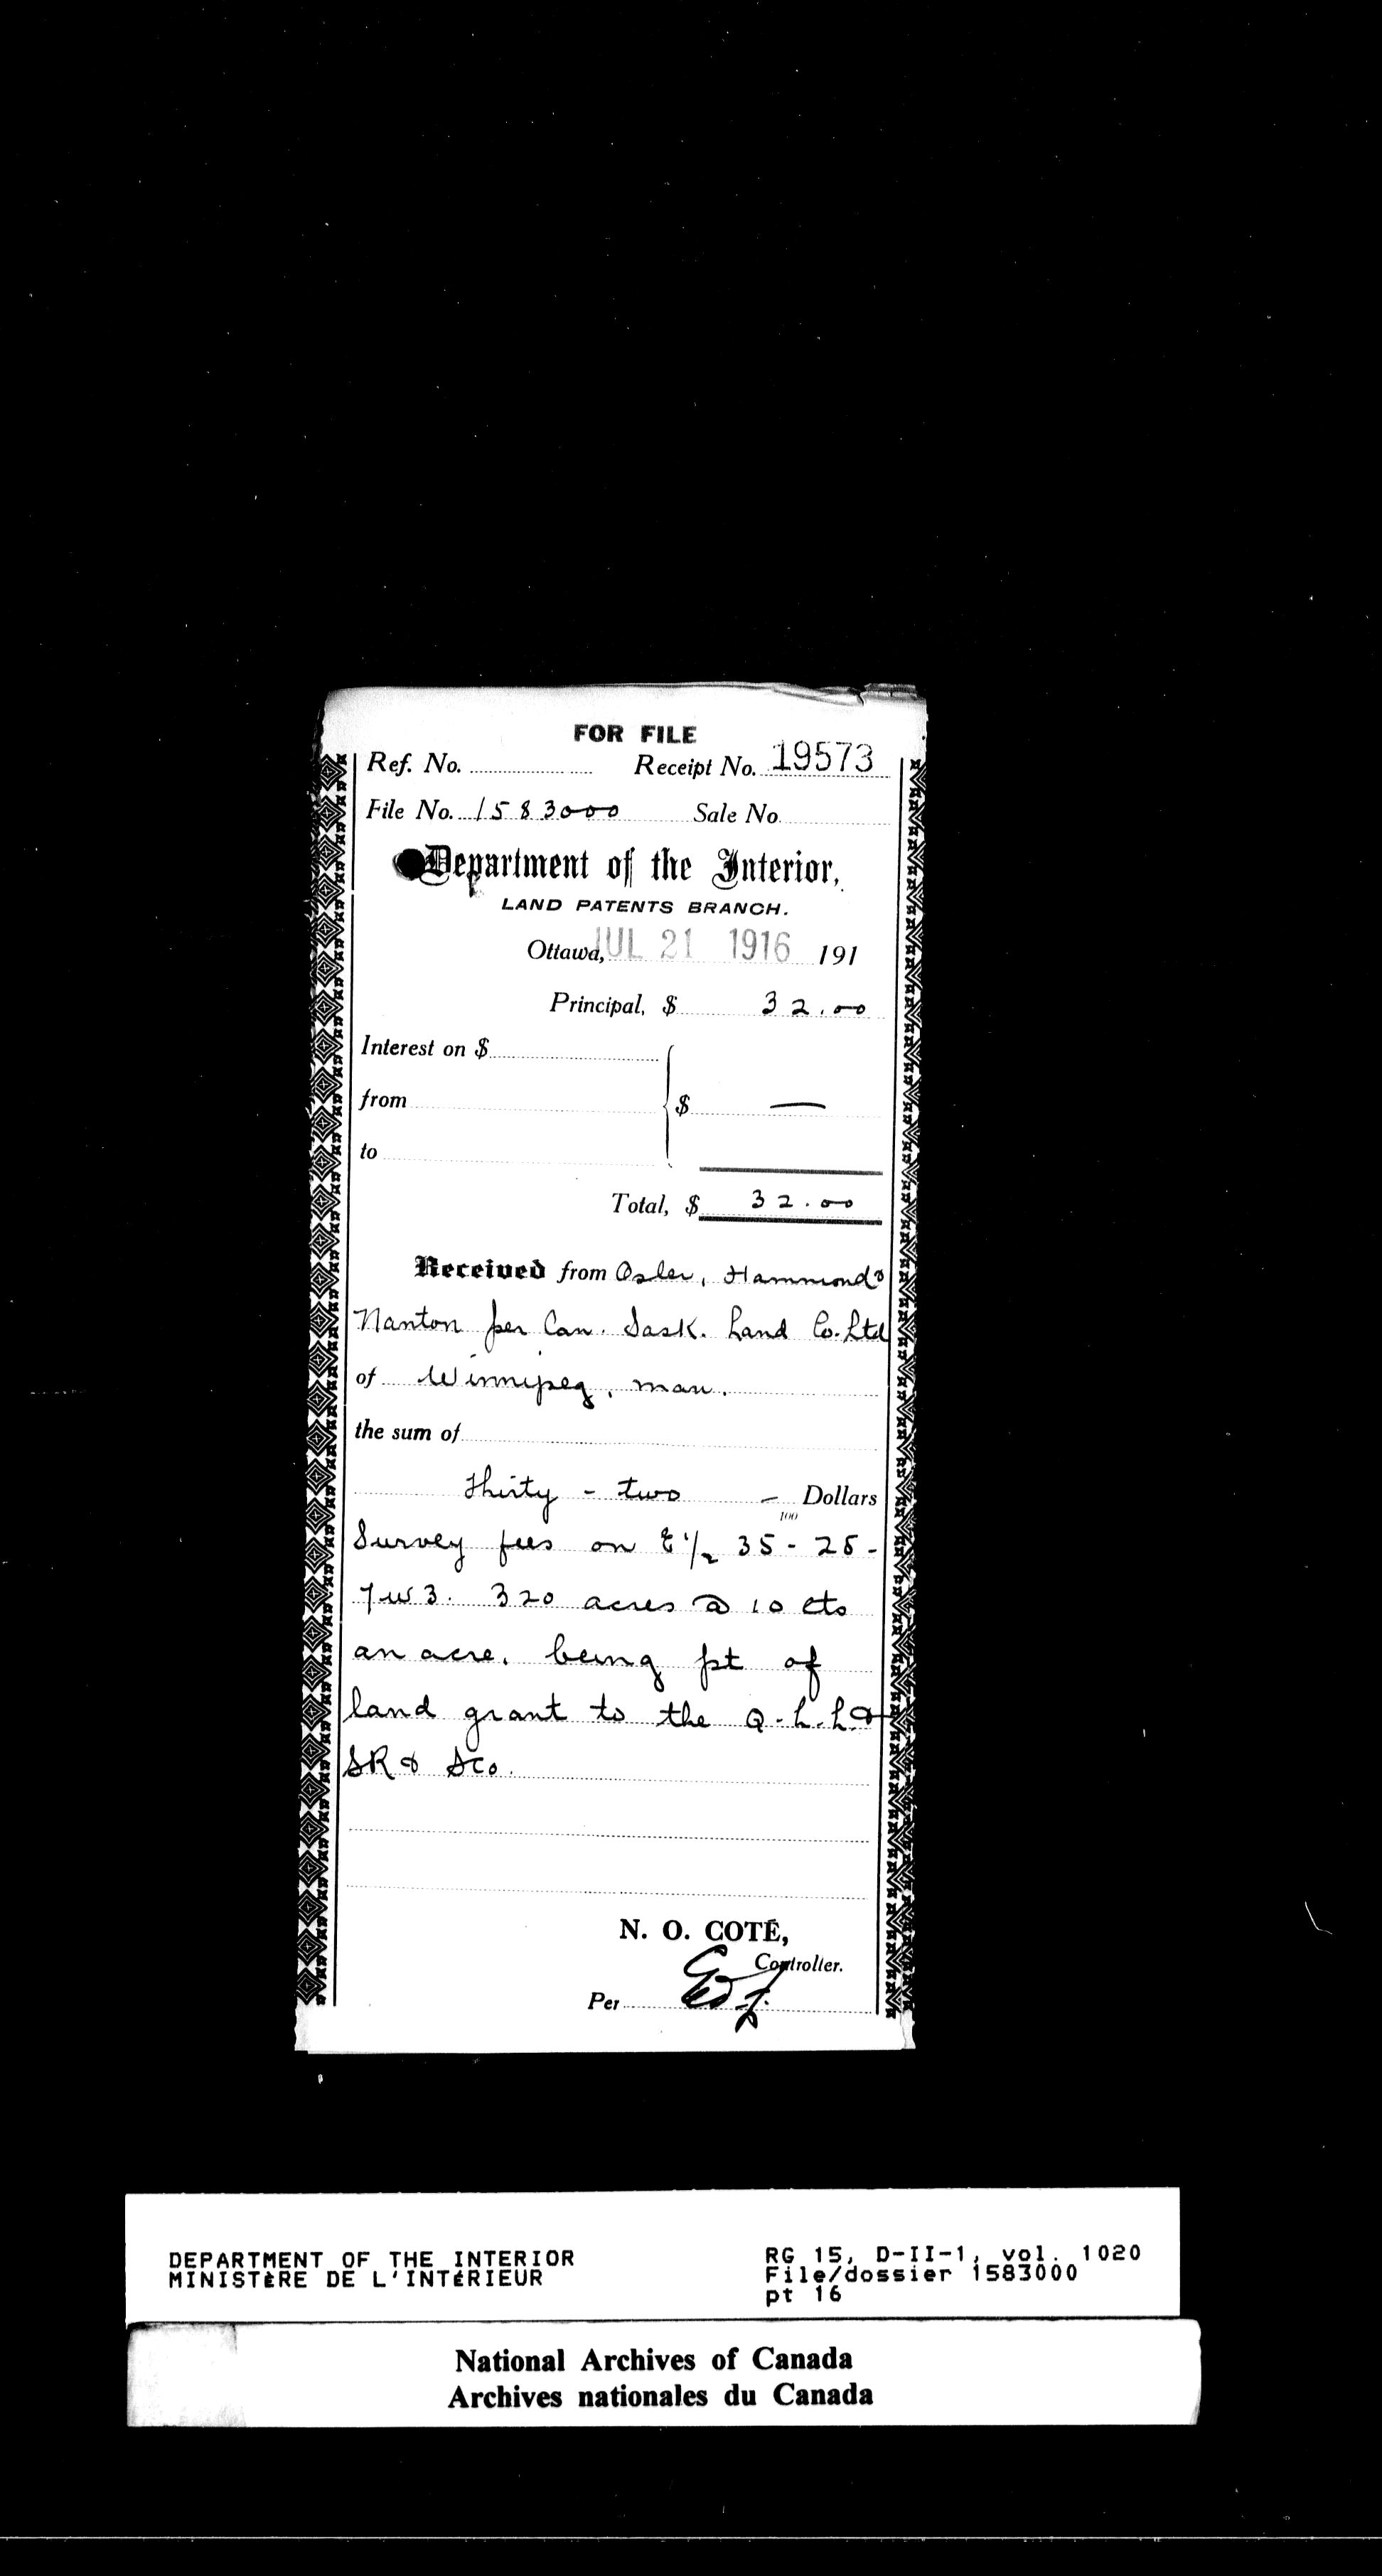 FOR FILE
Ref. No. Receipt No. 19573
File No. 1583000 Sale No.
Department of the Interior,
LAND PATENTS BRANCH.
Ottawa, JUL 21 1916 191
Principal, $ 32.00
Interest on $
from $ —
to
Total, $ 32.00
Received from Osler, Hammond &
Nanton per Can. Sask. Land Co. Ltd
of Winnipeg, Man.
the sum of
Thirty - two — Dollars
100
Survey fees on E 1/2 35 - 25 -
7 W 3. 320 acres @ 10 cts
an acre. being pt of
land grant to the Q. L. L. &
SR & S Co.
N. O. COTÉ,
Controller.
Per
DEPARTMENT OF THE INTERIOR
MINISTÈRE DE L'INTÉRIEUR
RG 15, D-II-1, vol. 1020
File/dossier 1583000
pt 16
National Archives of Canada
Archives nationales du Canada